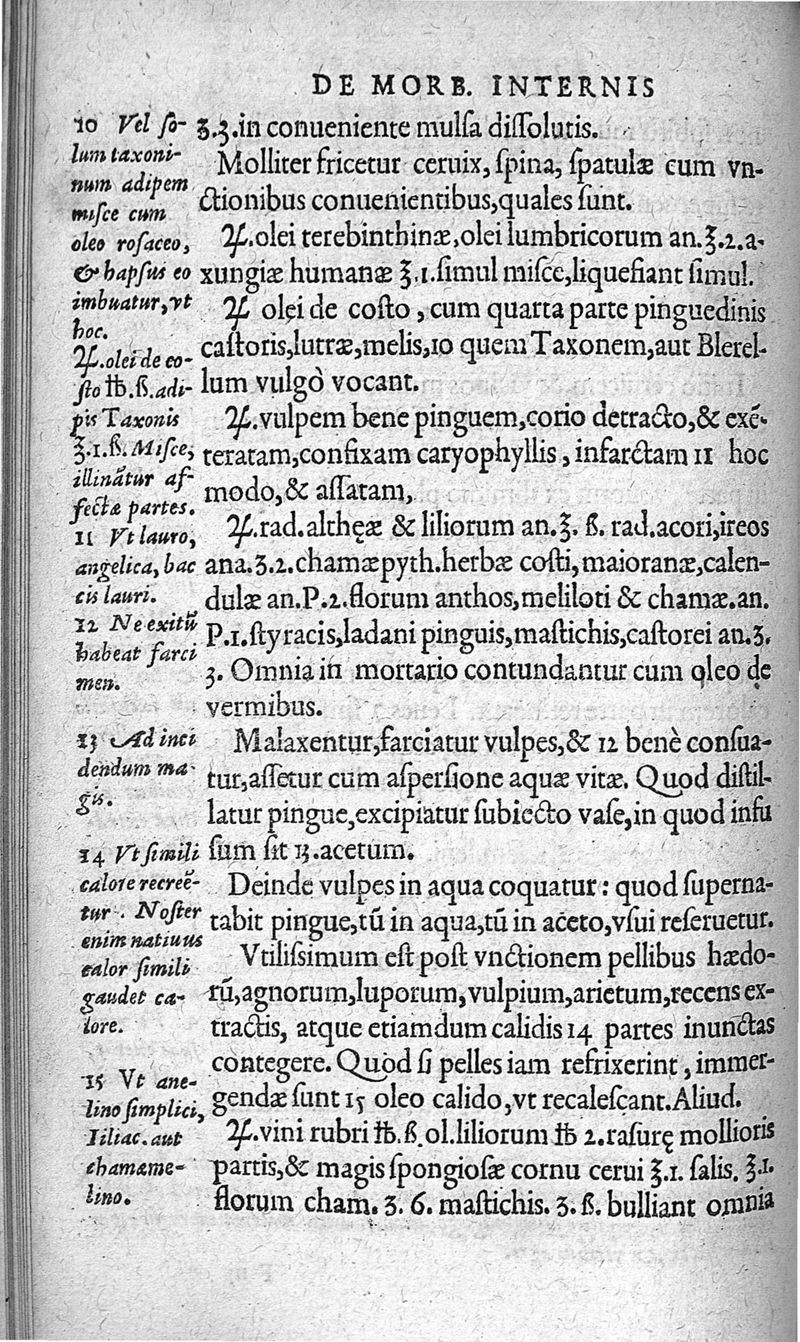 DE MORB. INTERNIS
ʒ.3.in conueniente mulſa diſſolutis.
Molliter fricetur ceruix, ſpina, ſpatulæ cum vn-
ctionibus conuenientibus,quales ſunt.
℞.olei terebinthinæ,olei lumbricorum an.℥.2.a-
xungiæ humanæ ℥.1.ſimul miſce,liquefiant ſimul.
℞ olei de coſto, cum quarta parte pinguedinis
caſtoris,lutræ,melis,10 quem Taxonem,aut Blerel-
lum vulgò vocant.
℞.vulpem bene pinguem,corio detracto,& exẽ-
teratam,confixam caryophyllis, infarctam 11 hoc
modo,& aſſatam,
℞.rad.althęæ & liliorum an.℥. ß. rad.acori,ireos
ana.ʒ.2.chamæpyth.herbæ coſti,maioranæ,calen-
dulæ an.P.2.florum anthos,meliloti & chamæ.an.
P.1.ſtyracis,ladani pinguis,maſtichis,caſtorei an.ʒ.
3. Omnia in mortario contundantur cum oleo de
vermibus.
Malaxentur,farciatur vulpes,& 12 benè conſua-
tur,aſſetur cum aſperſione aquæ vitæ. Quod diſtil-
latur pingue,excipiatur ſubiecto vaſe,in quod infu
ſum ſit 13.acetum.
Deinde vulpes in aqua coquatur: quod ſuperna-
tabit pingue,tũ in aqua,tũ in aceto,vſui reſeruetur.
Vtiliſſimum eſt poſt vnctionem pellibus hædo-
rũ,agnorum,luporum,vulpium,arietum,recens ex-
tractis, atque etiamdum calidis 14 partes inunctas
contegere. Quod ſi pelles iam refrixerint, immer-
gendæ ſunt 15 oleo calido,vt recaleſcant.Aliud.
℞.vini rubri ℔.ß.ol.liliorum ℔ 2.raſurę mollioris
partis,& magis ſpongioſæ cornu cerui ℥.1. ſalis. ℥.1.
florum cham. ʒ. 6. maſtichis. ʒ. ß. bulliant omnia
10 Vel ſo-
lum taxoni-
num adipem
miſce cum
oleo roſaceo,
& hapſus eo
imbuatur,vt
hoc.
℞.olei de co-
ſto ℔.ß.adi-
pis Taxonis
℥.1.ß.Miſce,
illinãtur af-
fectæ partes.
11 Vt lauro,
angelica, bac
cis lauri.
12 Ne exitũ
habeat farci
men.
13 Ad inci
dendum ma-
gis.
14 Vt ſimili
calore recreẽ-
tur. Noſter
enim natiuus
calor ſimili
gaudet ca-
lore.
15 Vt ane-
lino ſimplici,
liliac. aut
chamæme-
lino.